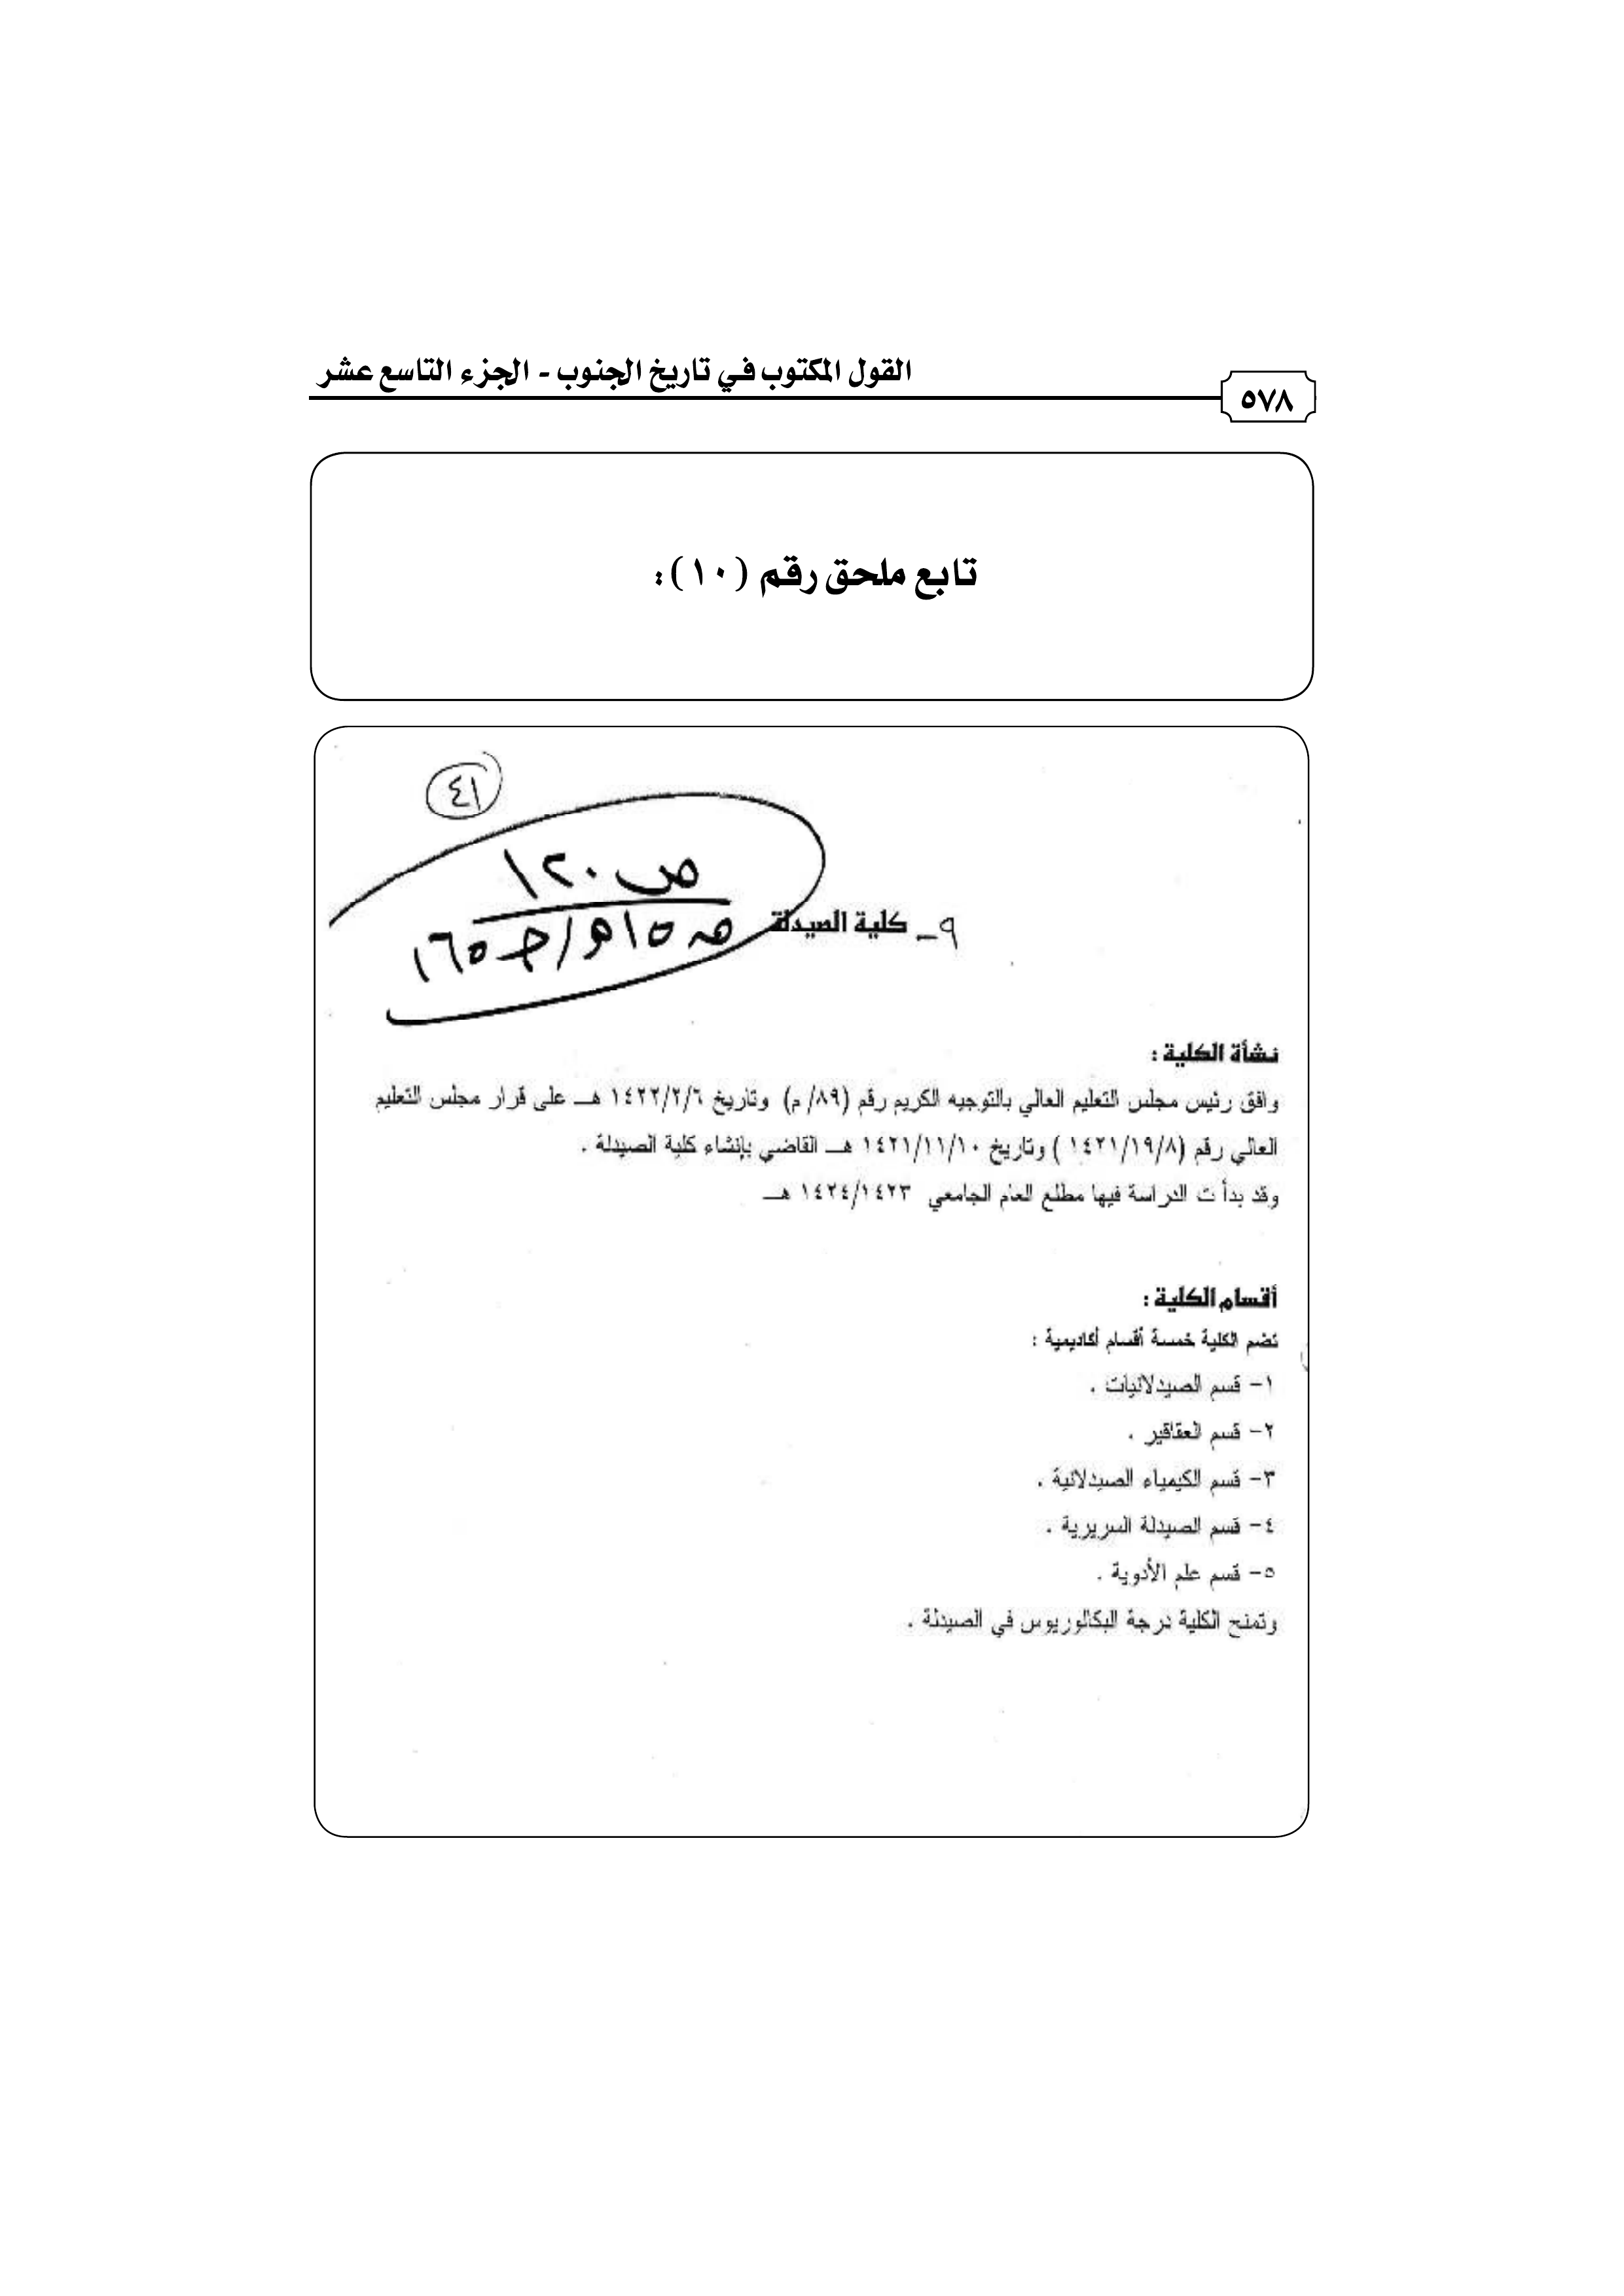 القول المكتوب في تاريخ الجنوب - الجزء التاسع عشر
٥٧٨
تابع ملحق رقم (١٠):
٤١
ص ١٢٠
٩- كلية الصيدلة
نشأة الكلية :
وافق رئيس مجلس التعليم العالي بالتوجيه الكريم رقم (٨٩/ م) وتاريخ ١٤٢٢/٢/٦ هـ على قرار مجلس التعليم
العالي رقم (١٤٢١/١٩/٨ ) وتاريخ ١٤٢١/١١/١٠ هـ القاضي بإنشاء كلية الصيدلة .
وقد بدأ ت الدراسة فيها مطلع العام الجامعي ١٤٢٤/١٤٢٣ هـ
أقسام الكلية :
تضم الكلية خمسة أقسام أكاديمية :
١- قسم الصيدلانيات .
٢- قسم العقاقير .
٣- قسم الكيمياء الصيدلانية .
٤- قسم الصيدلة السريرية .
٥- قسم علم الأدوية .
وتمنح الكلية درجة البكالوريوس في الصيدلة .